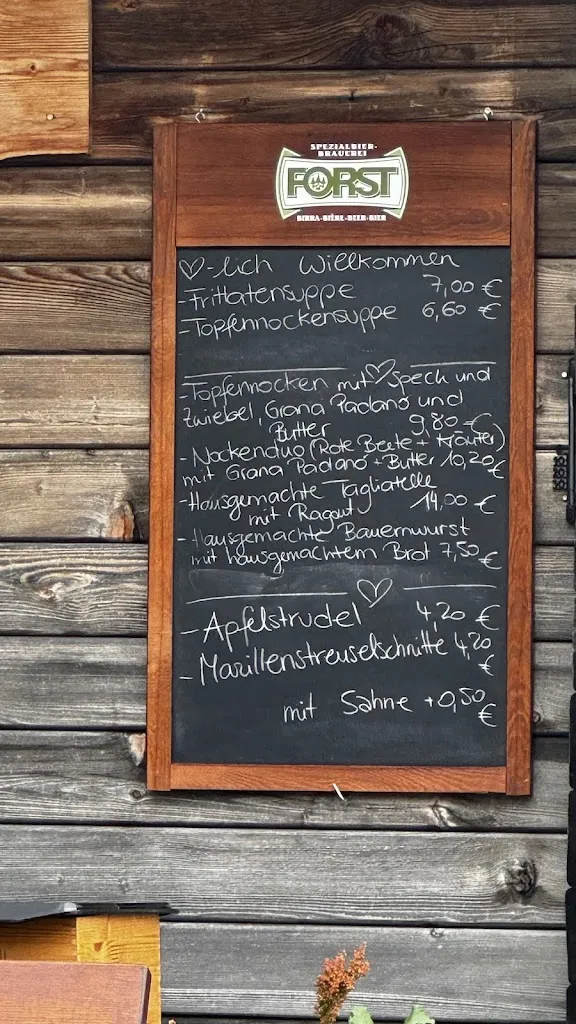 SPEZIALBIER-
BRAUEREI
FORST
BIRRA-BIÈRE-BEER-BIER
♡-lich Willkommen
-Frittatensuppe 7,00 €
-Topfennockensuppe 6,60 €
-Topfennocken mit Speck und
Zwiebel, Grana Padano und
Butter 9,80 €
- Nockenduo (Rote Beete + Kräuter)
mit Grana Padano + Butter 10,20 €
-Hausgemachte Tagliatelle
mit Ragout 14,00 €
- Hausgemachte Bauernwurst
mit hausgemachtem Brot 7,50 €
- Apfelstrudel 4,20 €
- Marillenstreuselschnitte 4,20
€
mit Sahne +0,50
€